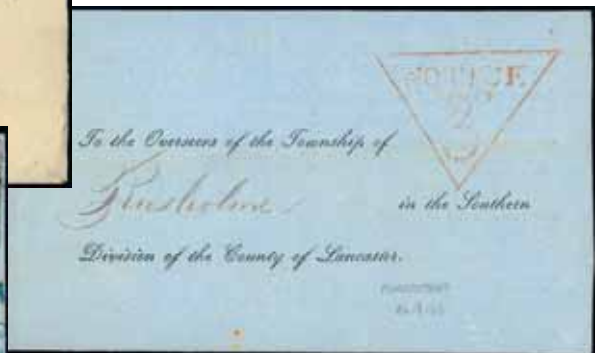 NOTICE
To the Overseers of the Township of
Rusholme
in the Southern
Division of the County of Lancaster.